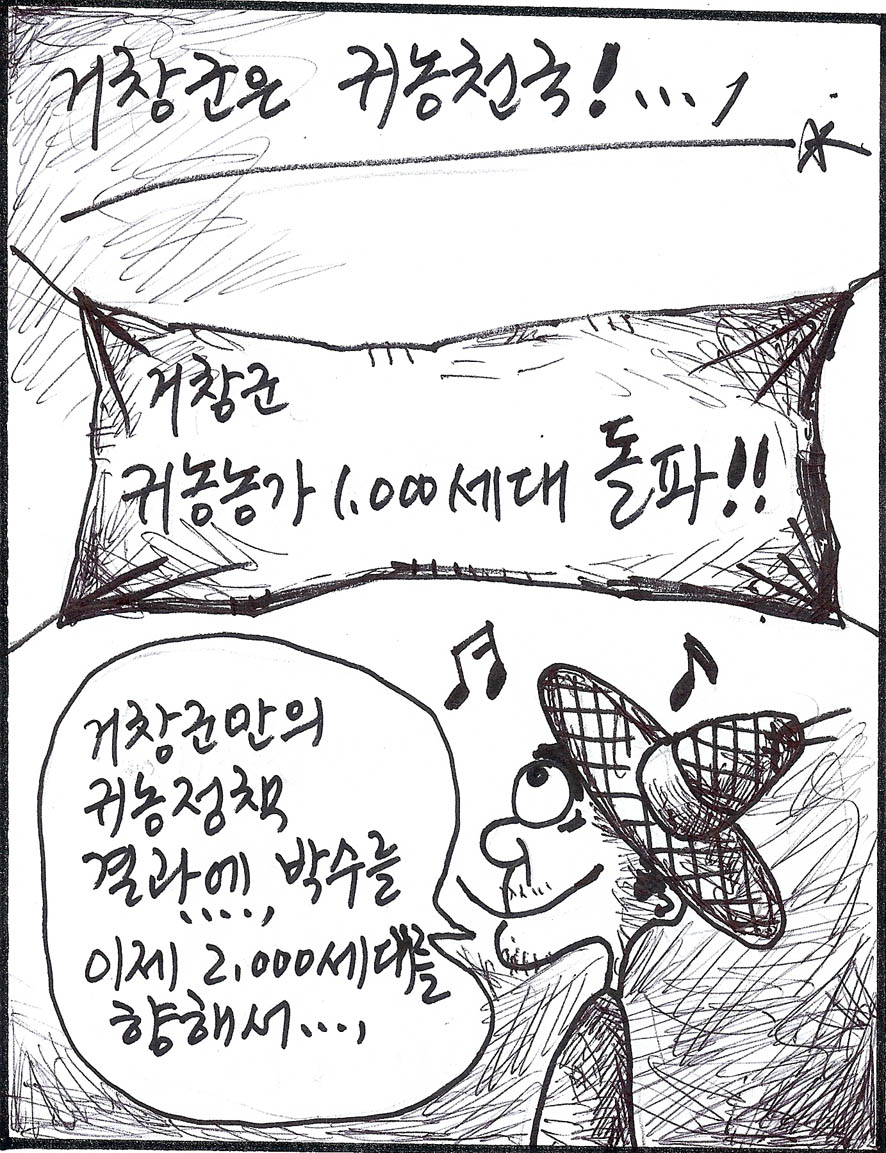 거창군은 귀농천국!...,
거창군
귀농농가 1.000세대 돌파!!
거창군만의
귀농정책
결과에...., 박수를
이제 2.000세대를
향해서...,